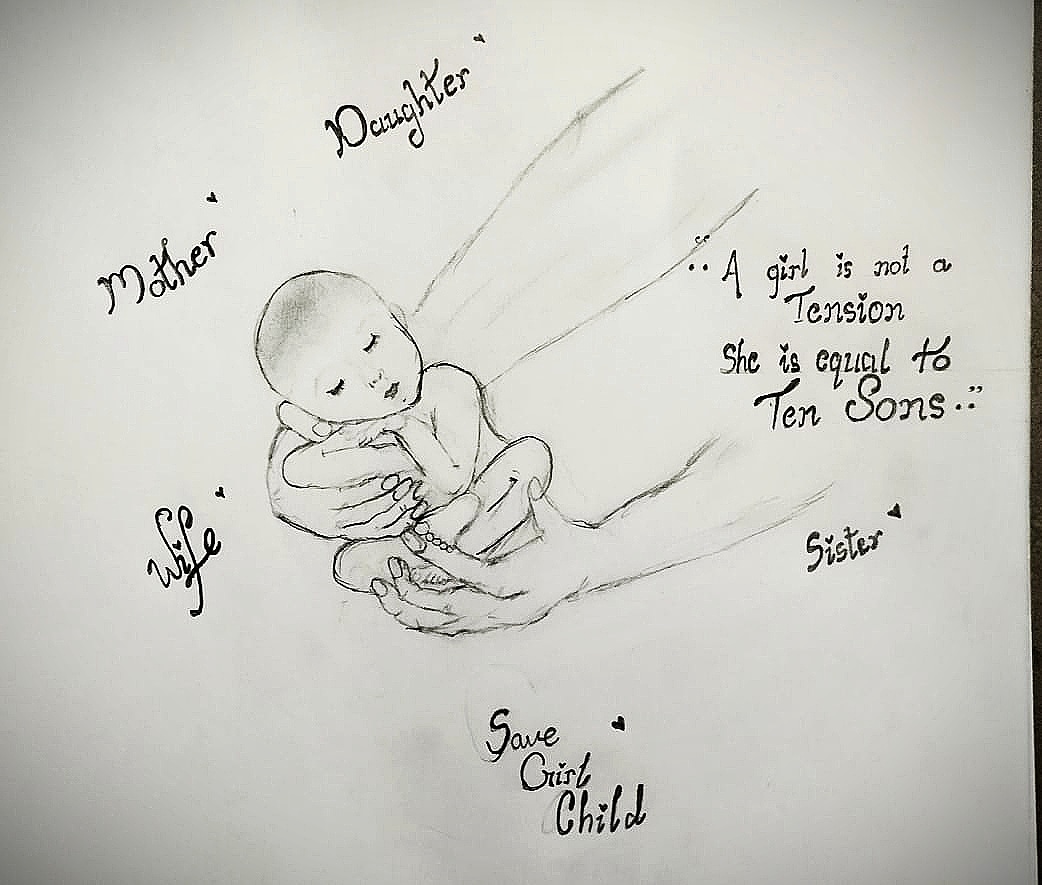 Daughter
Mother
"A girl is not a
Tension
She is equal to
Ten Sons.."
Wife
Sister
Save
Girl
Child